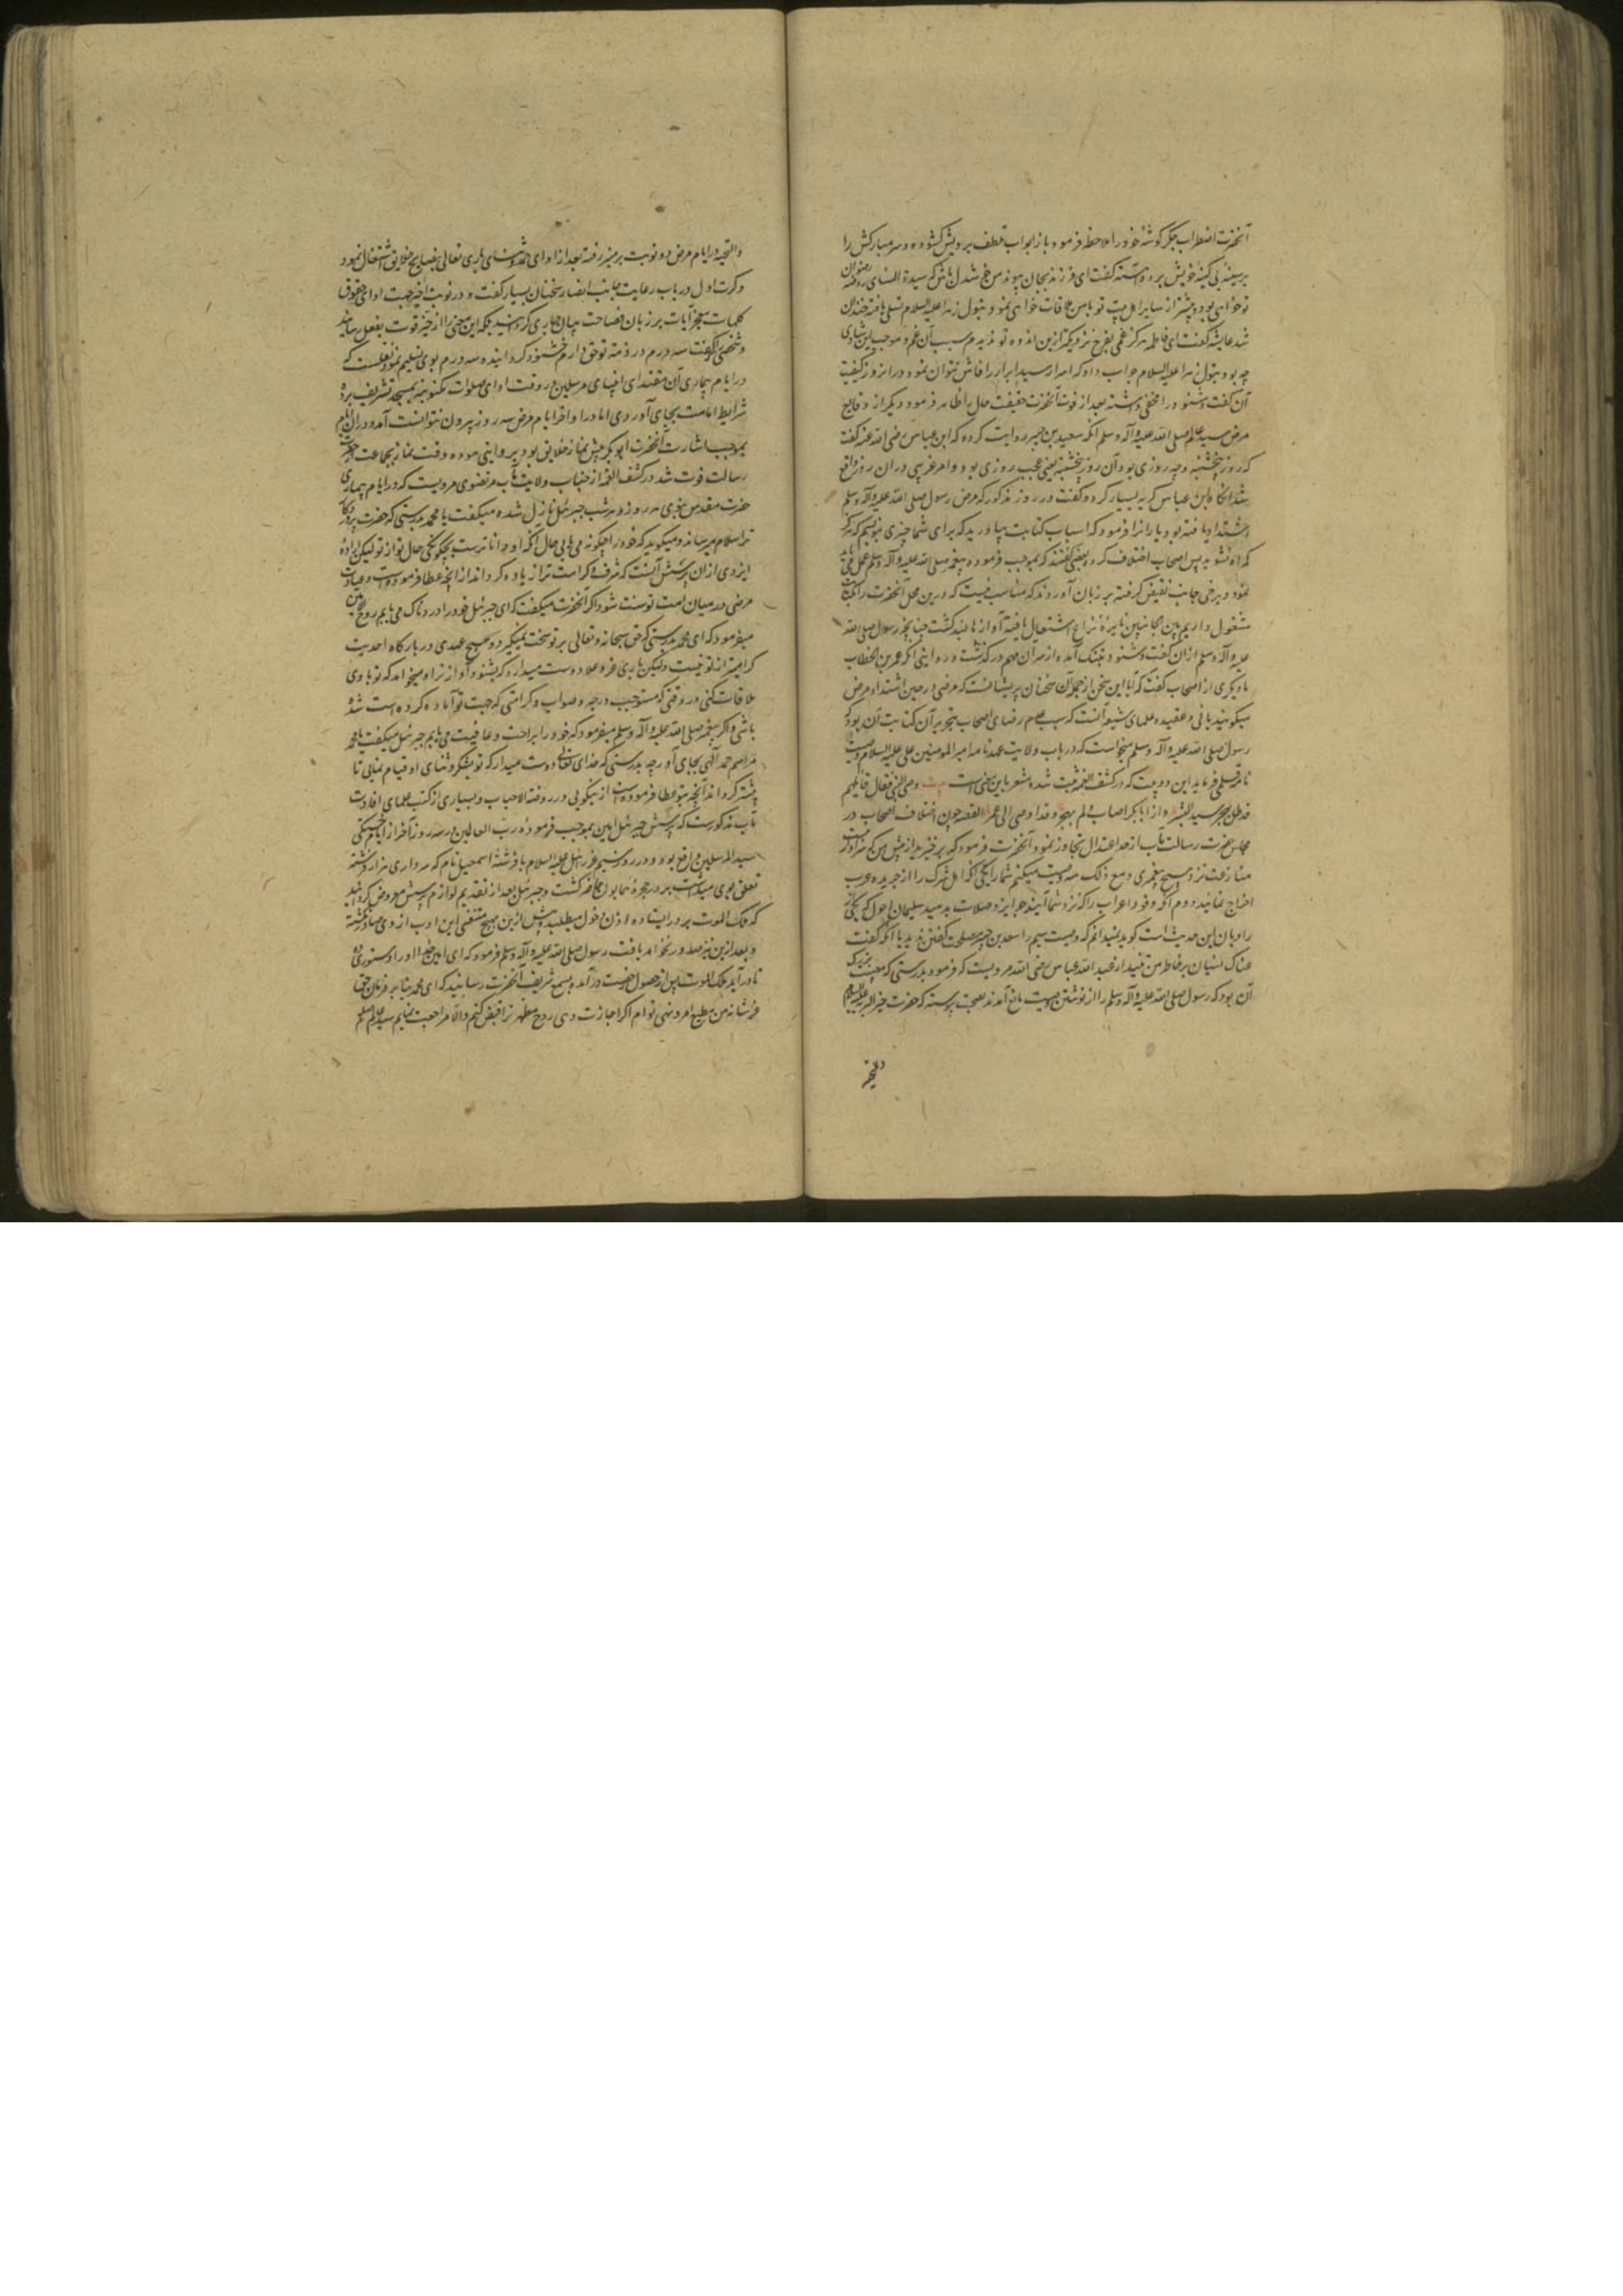 آنحضرت اضطراب جگرگوشهٔ خود را ملاحظه فرمود باز ابواب تلطف بر رویش گشوده و سر مبارکش را
بر سینه بی کینه خویش برد و آهسته گفت ای فرزند بجان پیوند من خوشدل باش که سیدة النسای روضه رضوان
تو خواهی بود و پیشتر از سایر اهل بیت تو با من ملاقات خواهی نمود و بتول زهرا علیها السلام تسلی یافته خندان
شد عایشه گفت ای فاطمه هرگز غمی بفرح نزدیکتر ازین اندوه تو ندیدم سبب آن غم و موجب این شادی
چه بود بتول زهرا علیها السلام جواب داد که اسرار سید ابرار را فاش نتوان نمود و در انروز کیفیت
آن گفت و شنود را مخفی داشته بعد از فوت آنحضرت حقیقت حال را ظاهر فرمود و دیگر از وقایع
مرض سید عالم صلی الله علیه و آله وسلم آنکه سعید بن جبیر روایت کرده که ابن عباس رضی الله عنه گفت
که روز پنجشنبه و چه روزی بود آن روز پنجشنبه یعنی عجب روزی بود و امر غریبی در ان روز واقع
شد آنگاه ابن عباس گریه بسیار کرد و گفت در روز مذکور که مرض رسول صلی الله علیه وآله وسلم
اشتداد یافته بود یارانرا فرمود که اسباب کتابت بیاورید که برای شما چیزی نویسم که هرگز
گمراه نشوید پس اصحاب اختلاف کرده بعضی گفتند که بموجب فرموده پیغمبر صلی الله علیه وآله وسلم عمل می باید
نمود و برخی جانب نقیض گرفته بر زبان آوردند که مناسب نیست که درین محل آنحضرت را بکتابت
مشغول داریم بین الجانبین نایرهٔ نزاع اشتعال یافته آوازها بلند گشت چنانچه رسول صلی الله
علیه وآله وسلم ازان گفت و شنود بتنگ آمده از سر آن مهم درگذشت و در روایتی آنکه عمر بن الخطاب
یا دیگری از اصحاب گفت که آیا این سخن از جمله آن سخنان پریشانست که مرضی در حین اشتداد مرض
میگویند یا نی و عقیده علمای شیعه آنست که سبب عدم رضای اصحاب بتحریر آن کتابت آن بود که
رسول صلی الله علیه وآله وسلم میخواست که در باب ولایت عهد نامه امیر المومنین علی علیه السلام وصیت
نامه قلمی فرماید این دو بیت که در کشف الغمه ثبت شده مشعر باین معنی است بیت وصی النبی فقال قایلهم
قد ظل یهجر سید البشر و از ابابکر اصاب و لم یهجر وقد اوصی الی عمر القصه چون اختلاف اصحاب در
مجلس حضرت رسالت مآب از حد اعتدال تجاوز نمود آنحضرت فرمود که برخیزید از پیش من که سزاوار نیست
منازعت نزد هیچ پیغمبری و مع ذلک سه وصیت میکنم شما را یکی آنکه اهل شرک را از جزیره عرب
اخراج نمائید دوم آنکه وفود اعراب را که نزد شما آیند جوایز و صلات بدهید سلیمان احول که یکی از
راویان این حدیث است گوید نمیدانم که وصیت سیم را سعید بن جبیر مصلحت گفتن ندید یا آنکه گفت
عناکب نسیان بر خاطر من تنید از عبد الله عباس رضی الله مرویست که فرمود بدرستی که مصیبت بزرگ
آن بود که رسول صلی الله علیه وآله وسلم را از نوشتن وصیت مانع آمدند بصحت پیوسته که حضرت خیر البریه علیه السلام
والتحیه
والتحیه در ایام مرض دو نوبت بر منبر رفته بعد از ادای حمد و ثنای باری تعالی بنصایح خلایق اشتغال نمود
و کرت اول در باب رعایت جانب انصار سخنان بسیار گفت و در نوبت اخیر جهت ادای حقوق
کلمات معجز آیات بر زبان فصاحت بیان جاری گردانید بلکه این معنی را از حیز قوت بفعل رسانید
و شخصی که گفت سه درم در ذمه تو حق دارم خشنود گردانیده سه درم بوی تسلیم نمود نقلست که
در ایام بیماری آن مقتدای انبیای مرسلین در وقت ادای صلوات مکتوبه بمسجد تشریف برده
شرایط امامت بجای آوردی اما در اواخر ایام مرض سه روز بیرون نتوانست آمد و در ان ایام
بموجب اشارت آنحضرت ابوبکر پیش نماز خلایق بود و بروایتی هفده وقت نماز بجماعت از حضرت
رسالت فوت شد در کشف الغمه از جناب ولایت مآب مرتضوی مرویست که در ایام بیماری
حضرت مقدس نبوی هر روز و هر شب جبرئیل نازل شده میگفت یا محمد بدرستی که حضرت پروردگار
ترا سلام میرساند و میگوید که خود را چگونه می یابی و حال آنکه او داناترست بچگونگی حال تو از تو لیکن اراده
ایزدی ازان پرسش آنست که شرف و کرامت ترا زیاده گرداند از آنچه عطا فرموده و عیادت
مرضی در میان امت تو سنت شود اگر آنحضرت میگفت که ای جبرئیل خود را دردناک می یابم روح الامین
میفرمود که ای محمد بدرستی که حق سبحانه و تعالی بر تو سخت نمیگیرد و هیچ عبدی در بارگاه احدیت
گرامیتر از تو نیست ولیکن باری عز و علا دوست میدارد که بشنود آواز ترا و میخواهد که تو با وی
ملاقات کنی در وقتی که مستوجب درجه و صواب و کرامتی که جهت تو آماده کرده است شده
باشی و اگر پیغمبر صلی الله علیه وآله وسلم میفرمود که خود را براحت و عافیت می یابم جبرئیل میگفت یا محمد
مراسم حمد الهی بجای آور چه بدرستی که خدای تعالی دوست میدارد که تو بشکر و ثنای او قیام نمایی تا
بیشتر گرداند آنچه بتو عطا فرموده است از نیکویی و در روضة الاحباب و بسیاری از کتب علمای افادت
مآب مذکورست که پرسش جبرئیل امین بموجب فرموده رب العالمین در سه روز آخر از ایام خستگی
سید المرسلین واقع بود و در روز سیم عزرائیل علیه السلام با فرشته اسمعیل نام که سرداری هزار فرشته
تعلق بوی میداشت بر در حجره همایون حاضر گشت و جبرئیل بعد از تقدیم لوازم پرسش معروض گردانید
که ملک الموت بر در ایستاده اذن دخول میطلبد و پیش ازین بهیچ متنفسی این ادب از وی صادر نگشته
و بعد ازین نیز صدور نخواهد یافت رسول صلی الله علیه وآله وسلم فرمود که ای امین خدا او را دستوری ده
تا درآید ملک الموت پس از حصول رخصت درآمد و بسمع شریف آنحضرت رسانید که ای محمد بنا بر فرمان حق
عز شانه من مطیع امر و نهی توام اگر اجازت دهی روح مطهر ترا قبض کنم والا مراجعت نمایم سید عالم صلعم